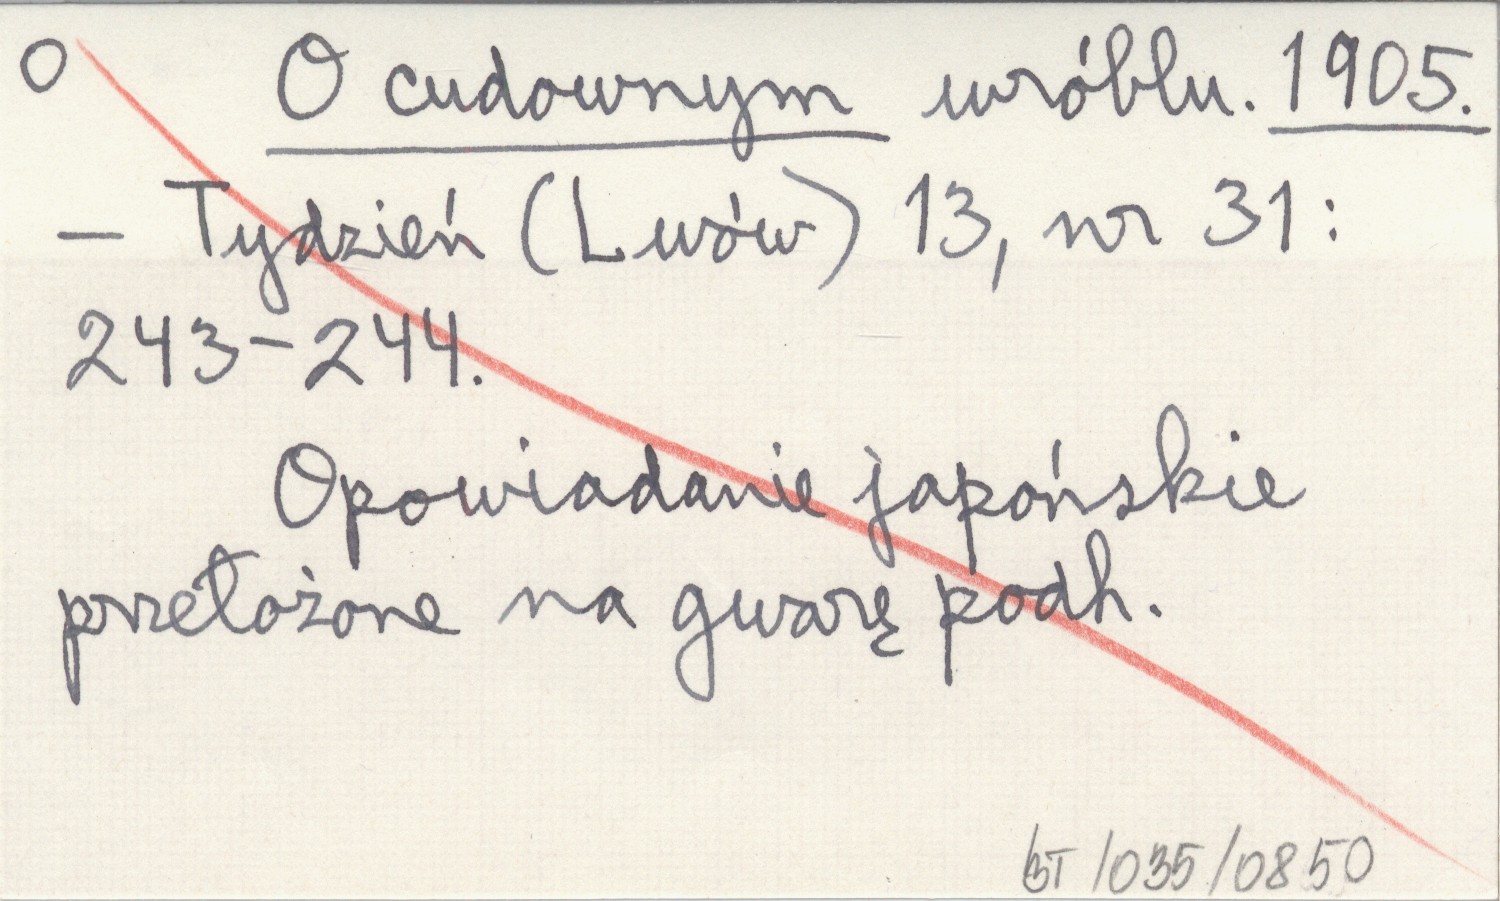 O O cudownym wróblu. 1905.
– Tydzień (Lwów) 13, nr 31:
243–244.
Opowiadanie japońskie
przełożone na gwarę podh.
BT/035/0850